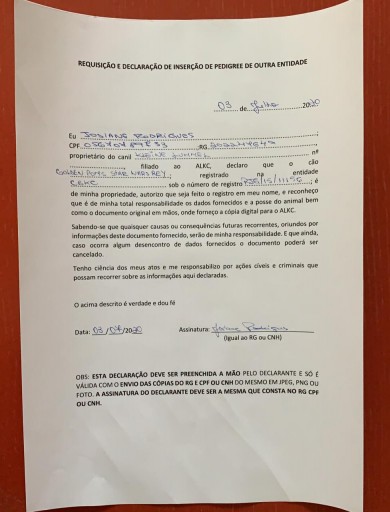 REQUISIÇÃO E DECLARAÇÃO DE INSERÇÃO DE PEDIGREE DE OUTRA ENTIDADE
03 de Julho 2020
Eu JOSIANE RODRIGUES
CPF RG
proprietário do canil nº
filiado ao ALKC, declaro que o cão
GOLDEN POMS STAR WARS REY; registrado na entidade
sob o número de registro ; é
de minha propriedade, autorizo que seja feito o registro em meu nome, e reconheço
que é de minha total responsabilidade os dados fornecidos e a posse do animal bem
como o documento original em mãos, onde forneço a cópia digital para o ALKC.
Sabendo-se que quaisquer causas ou consequências futuras recorrentes, oriundos por
informações deste documento fornecido, serão de minha responsabilidade. E que ainda,
caso ocorra algum desencontro de dados fornecidos o documento poderá ser
cancelado.
Tenho ciência dos meus atos e me responsabilizo por ações cíveis e criminais que
possam recorrer sobre as informações aqui declaradas.
O acima descrito é verdade e dou fé
Data: 03/07/2020 Assinatura: Josiane Rodrigues
(Igual ao RG ou CNH)
OBS: ESTA DECLARAÇÃO DEVE SER PREENCHIDA A MÃO PELO DECLARANTE E SÓ É
VÁLIDA COM O ENVIO DAS CÓPIAS DO RG E CPF OU CNH DO MESMO EM JPEG, PNG OU
FOTO. A ASSINATURA DO DECLARANTE DEVE SER A MESMA QUE CONSTA NO RG CPF
OU CNH.